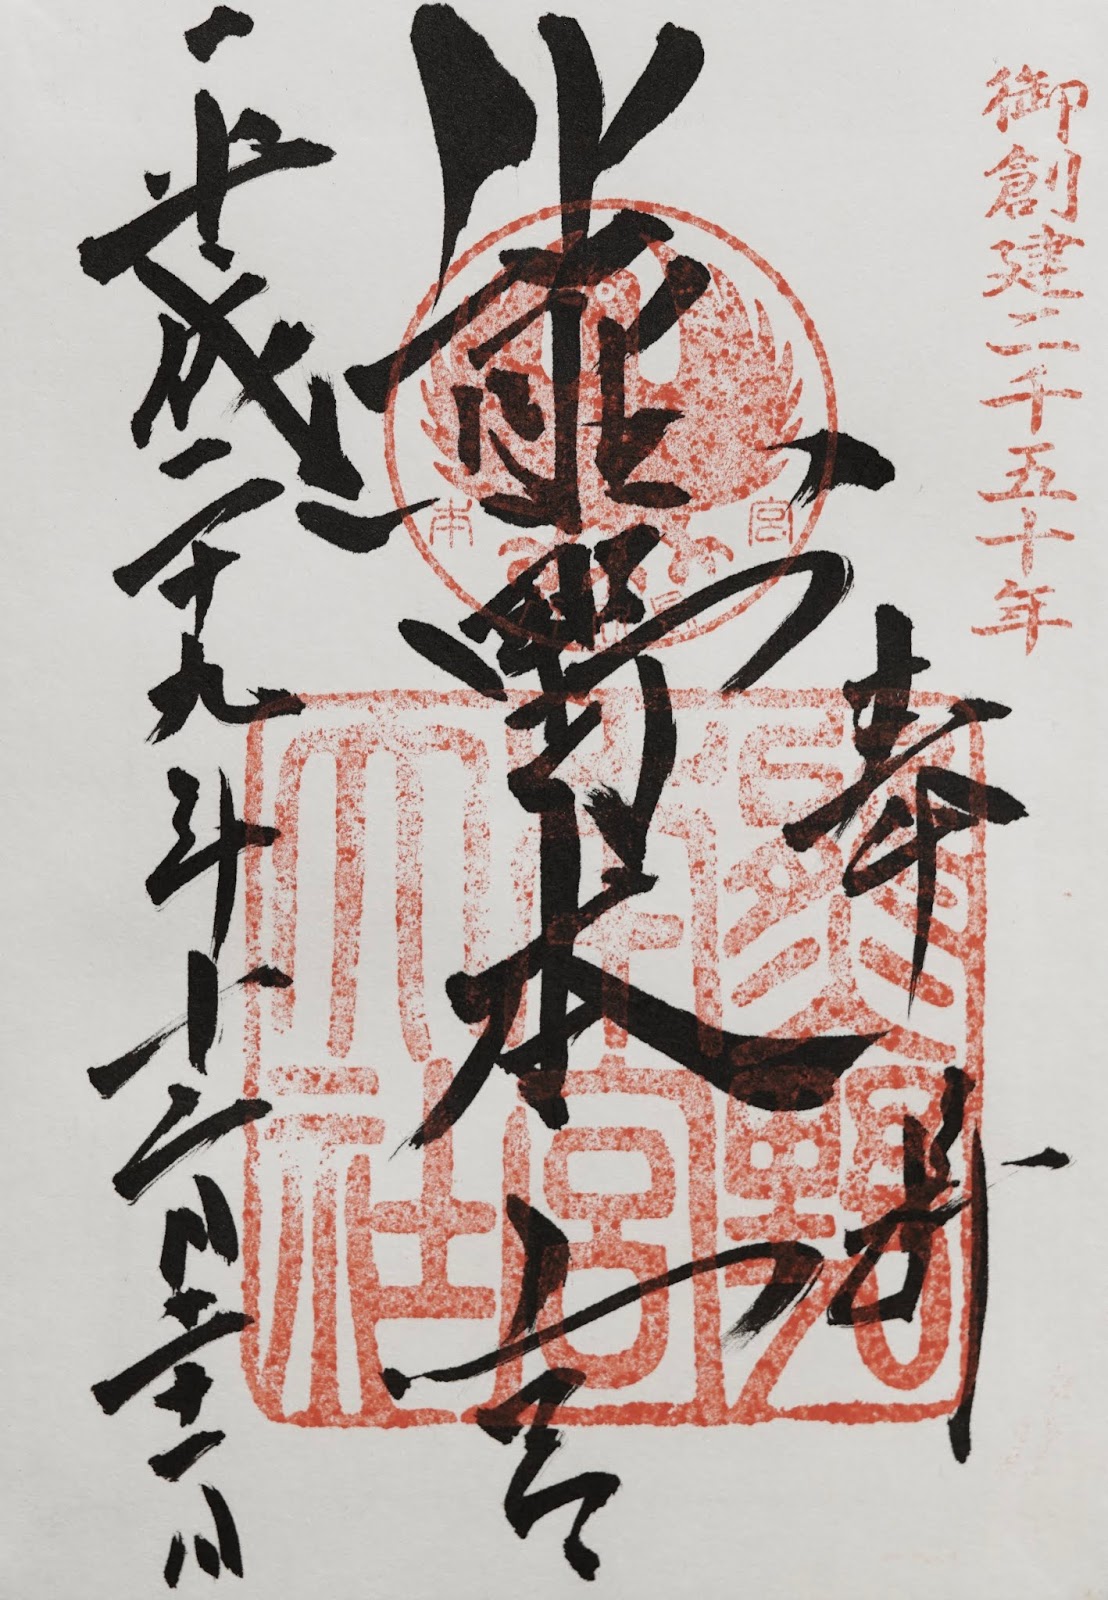 御創建二千五十年
奉拝
熊野本宮
平成二十九年十二月二十一日
本宮
熊野本宮大社